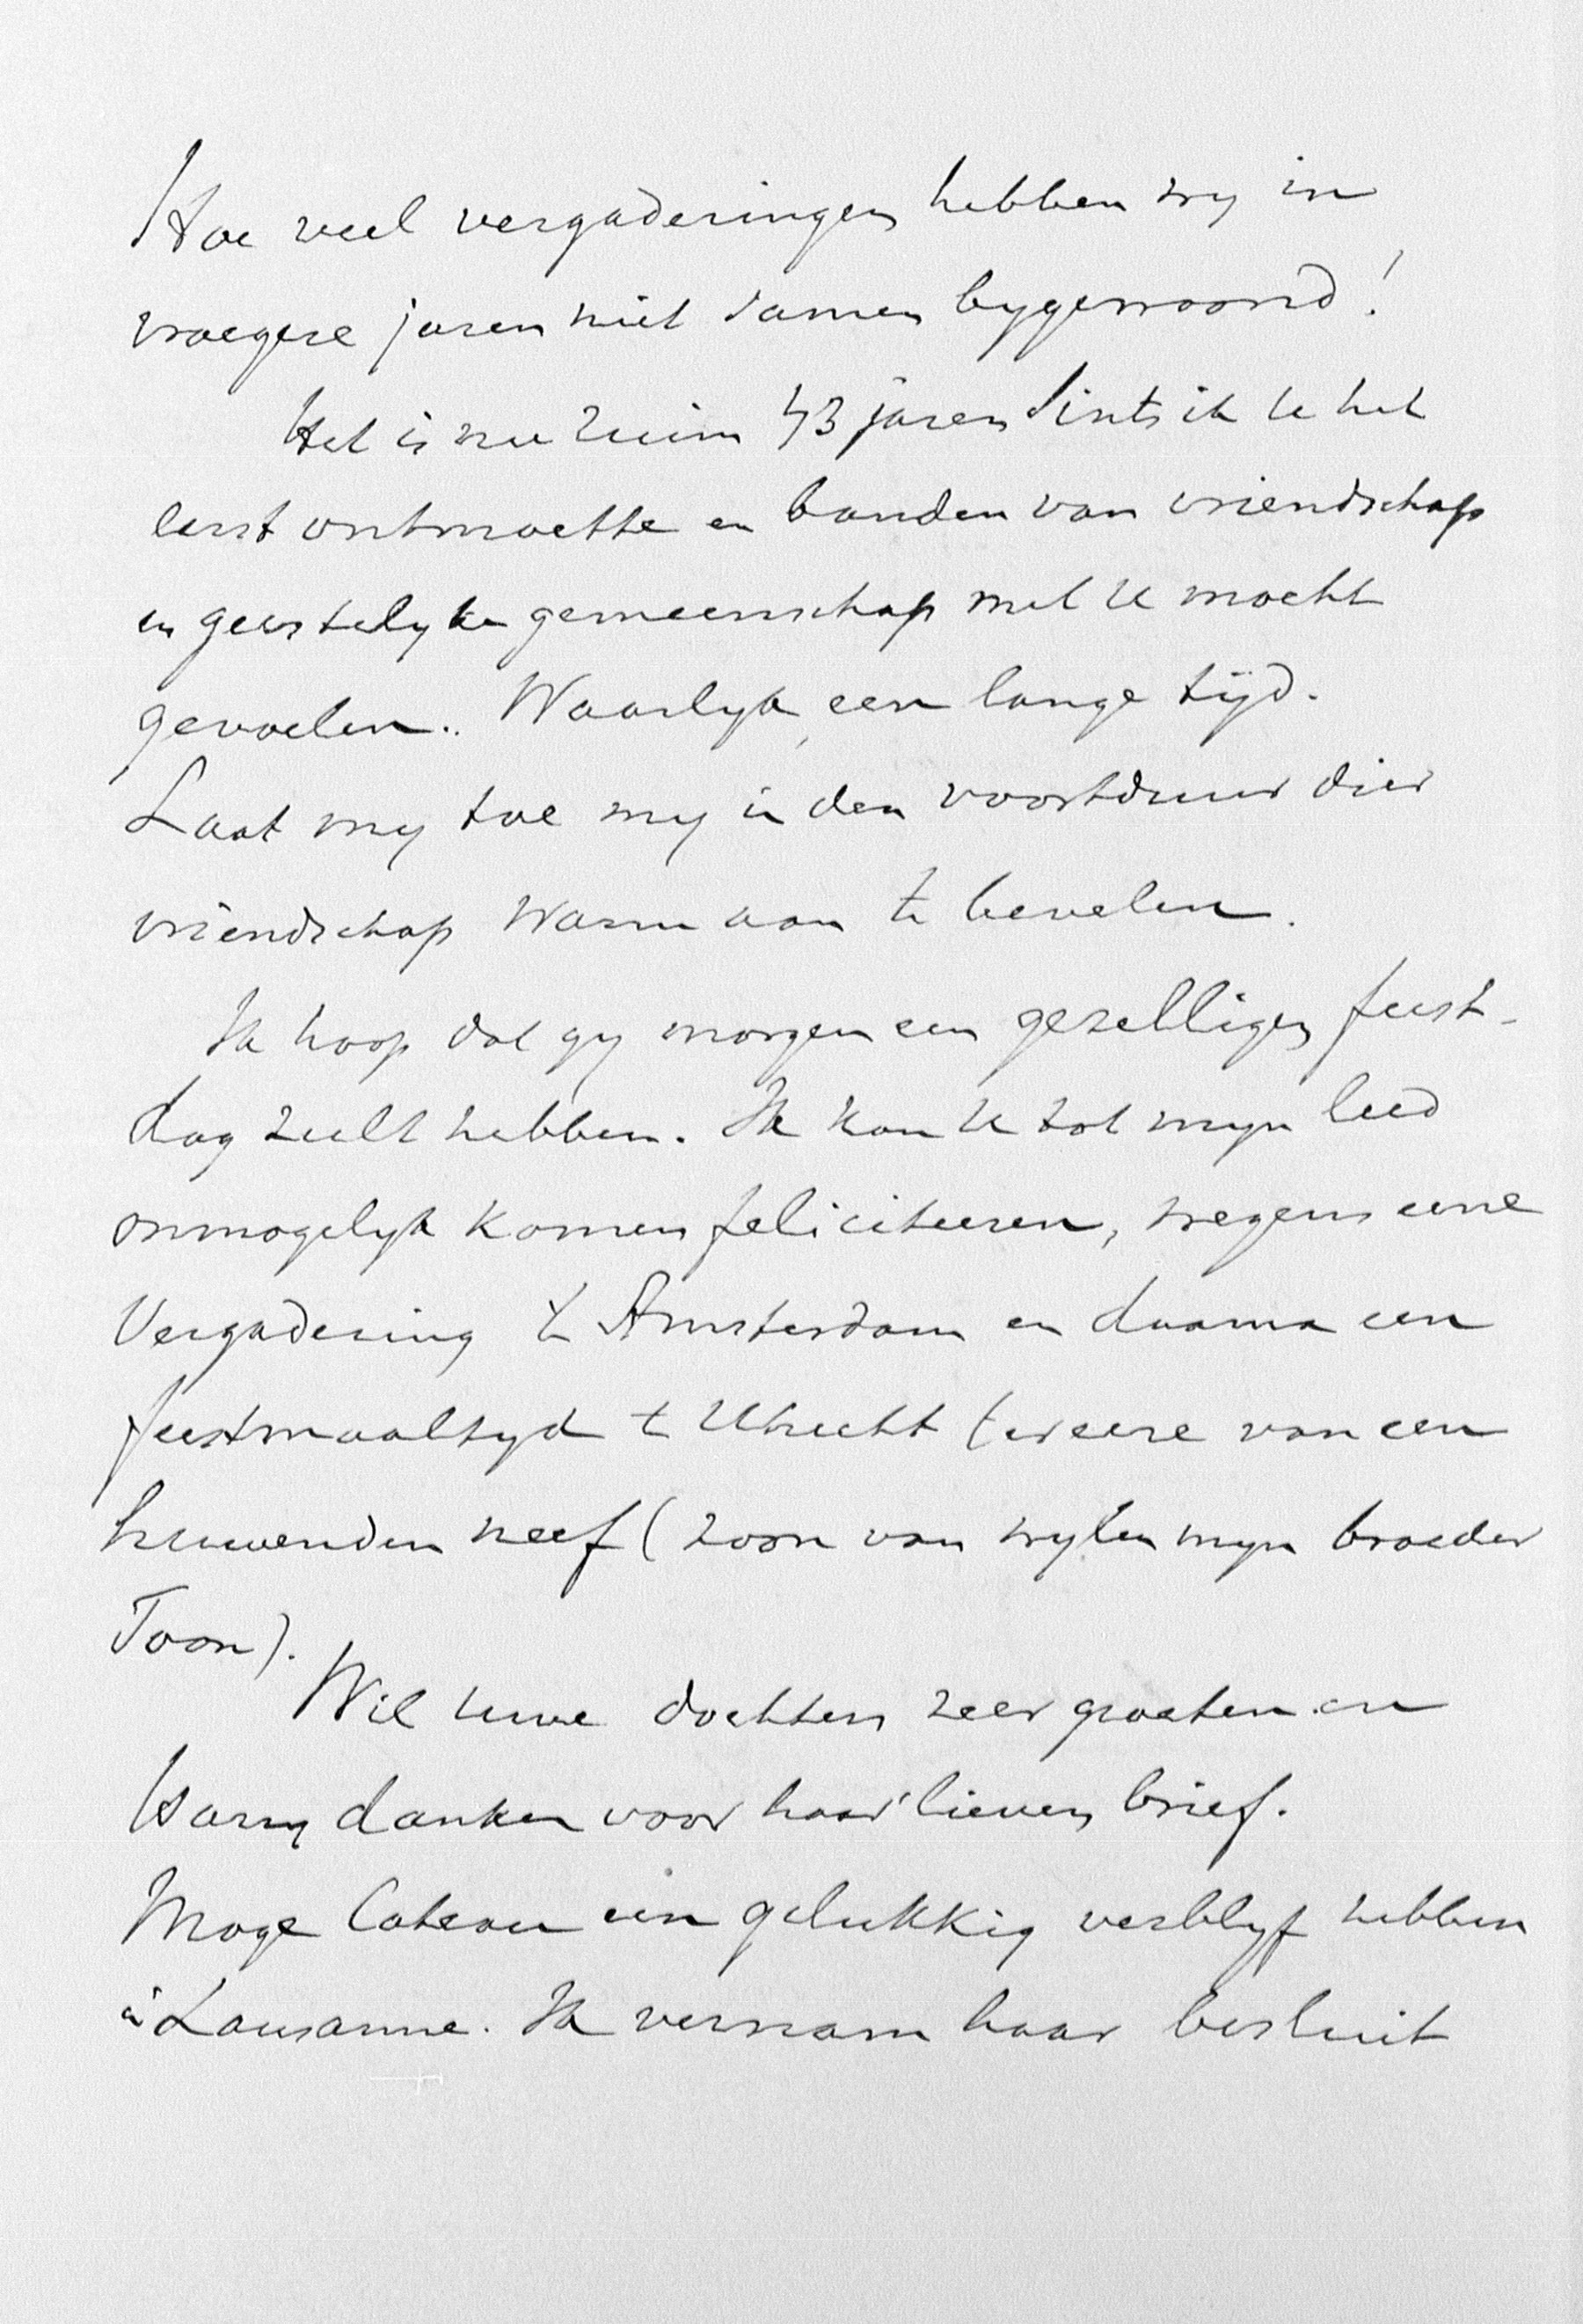 Hoe veel vergaderingen hebben wy in
vroegere jaren niet samen bygewoond!
Het is nu ruim 43 jaren sints ik U het
eerst ontmoette en banden van vriendschap
en geestelyke gemeenschap met U mocht
gevoelen. Waarlyk, een lange tijd.
Laat my toe my in den voortduur dier
vriendschap warm aan te bevelen.
Ik hoop dat gy morgen een gezelligen feest-
dag zult hebben. Ik kan U tot myn leed
onmogelyk komen feliciteeren, wegens eene
Vergadering te Amsterdam en daarna een
feestmaaltyd te Utrecht ter eere van een
huwenden neef (zoon van wylen myn broeder
Toon).
Wil uwe dochters zeer groeten en
warm danken voor haar lieven brief.
Moge Cateau een gelukkig verblyf hebben
in Lausanne. Ik vernam haar besluit